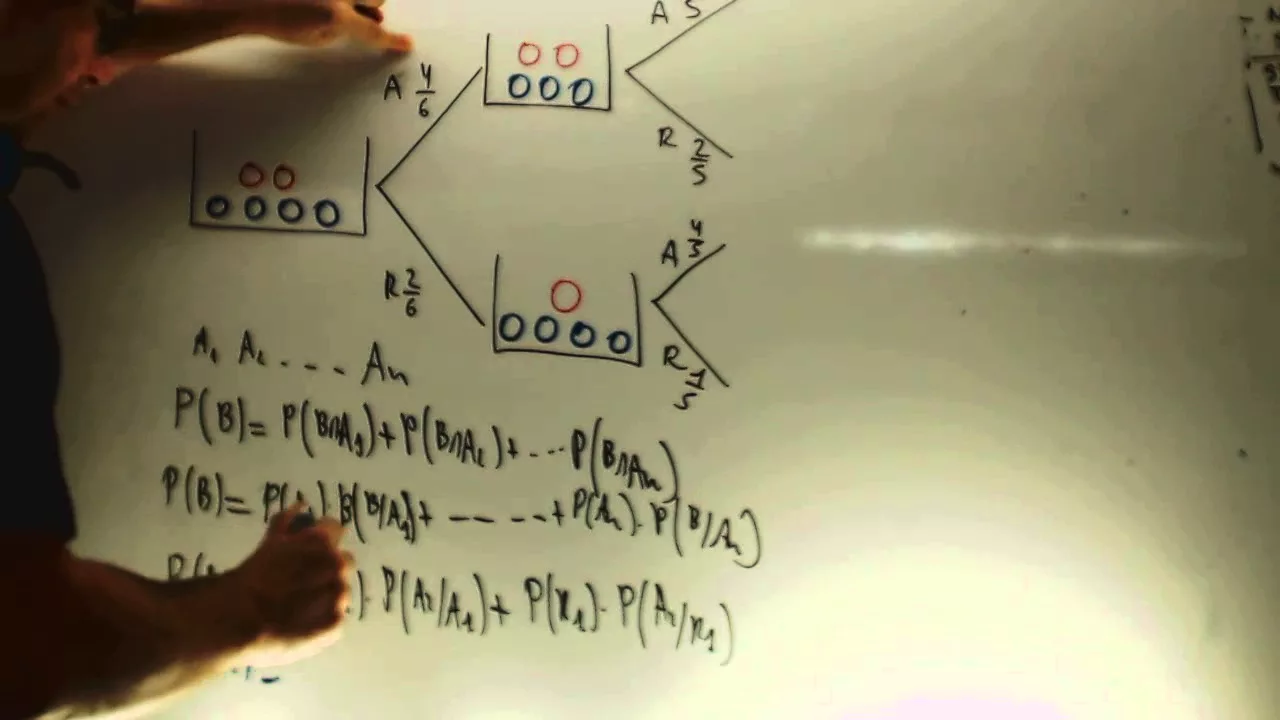 A 5
A 4/6
R 2/5
A 4/5
R 2/6
R 1/5
A₁ A₂ . . . . Aₙ
P(B)= P(B∩A₁)+P(B∩A₂)+ - ... P(B∩Aₙ)
P(B)= P( ). P(B/A₁)+ -- -- --+ P(Aₙ). P(B/Aₙ)
P( ). P(A₂/A₁)+ P(R₁). P(A₂/R₁)